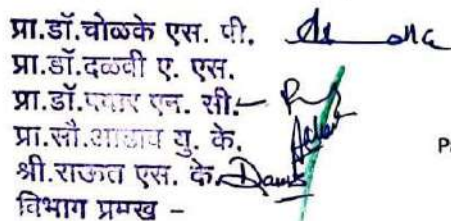 प्रा.डॉ.चोळके एस. पी.
प्रा.डॉ.दळवी ए. एस.
प्रा.डॉ.पवार एन. सी.
प्रा.सौ.आढाव यु. के.
श्री.राऊत एस. के.
विभाग प्रमुख -